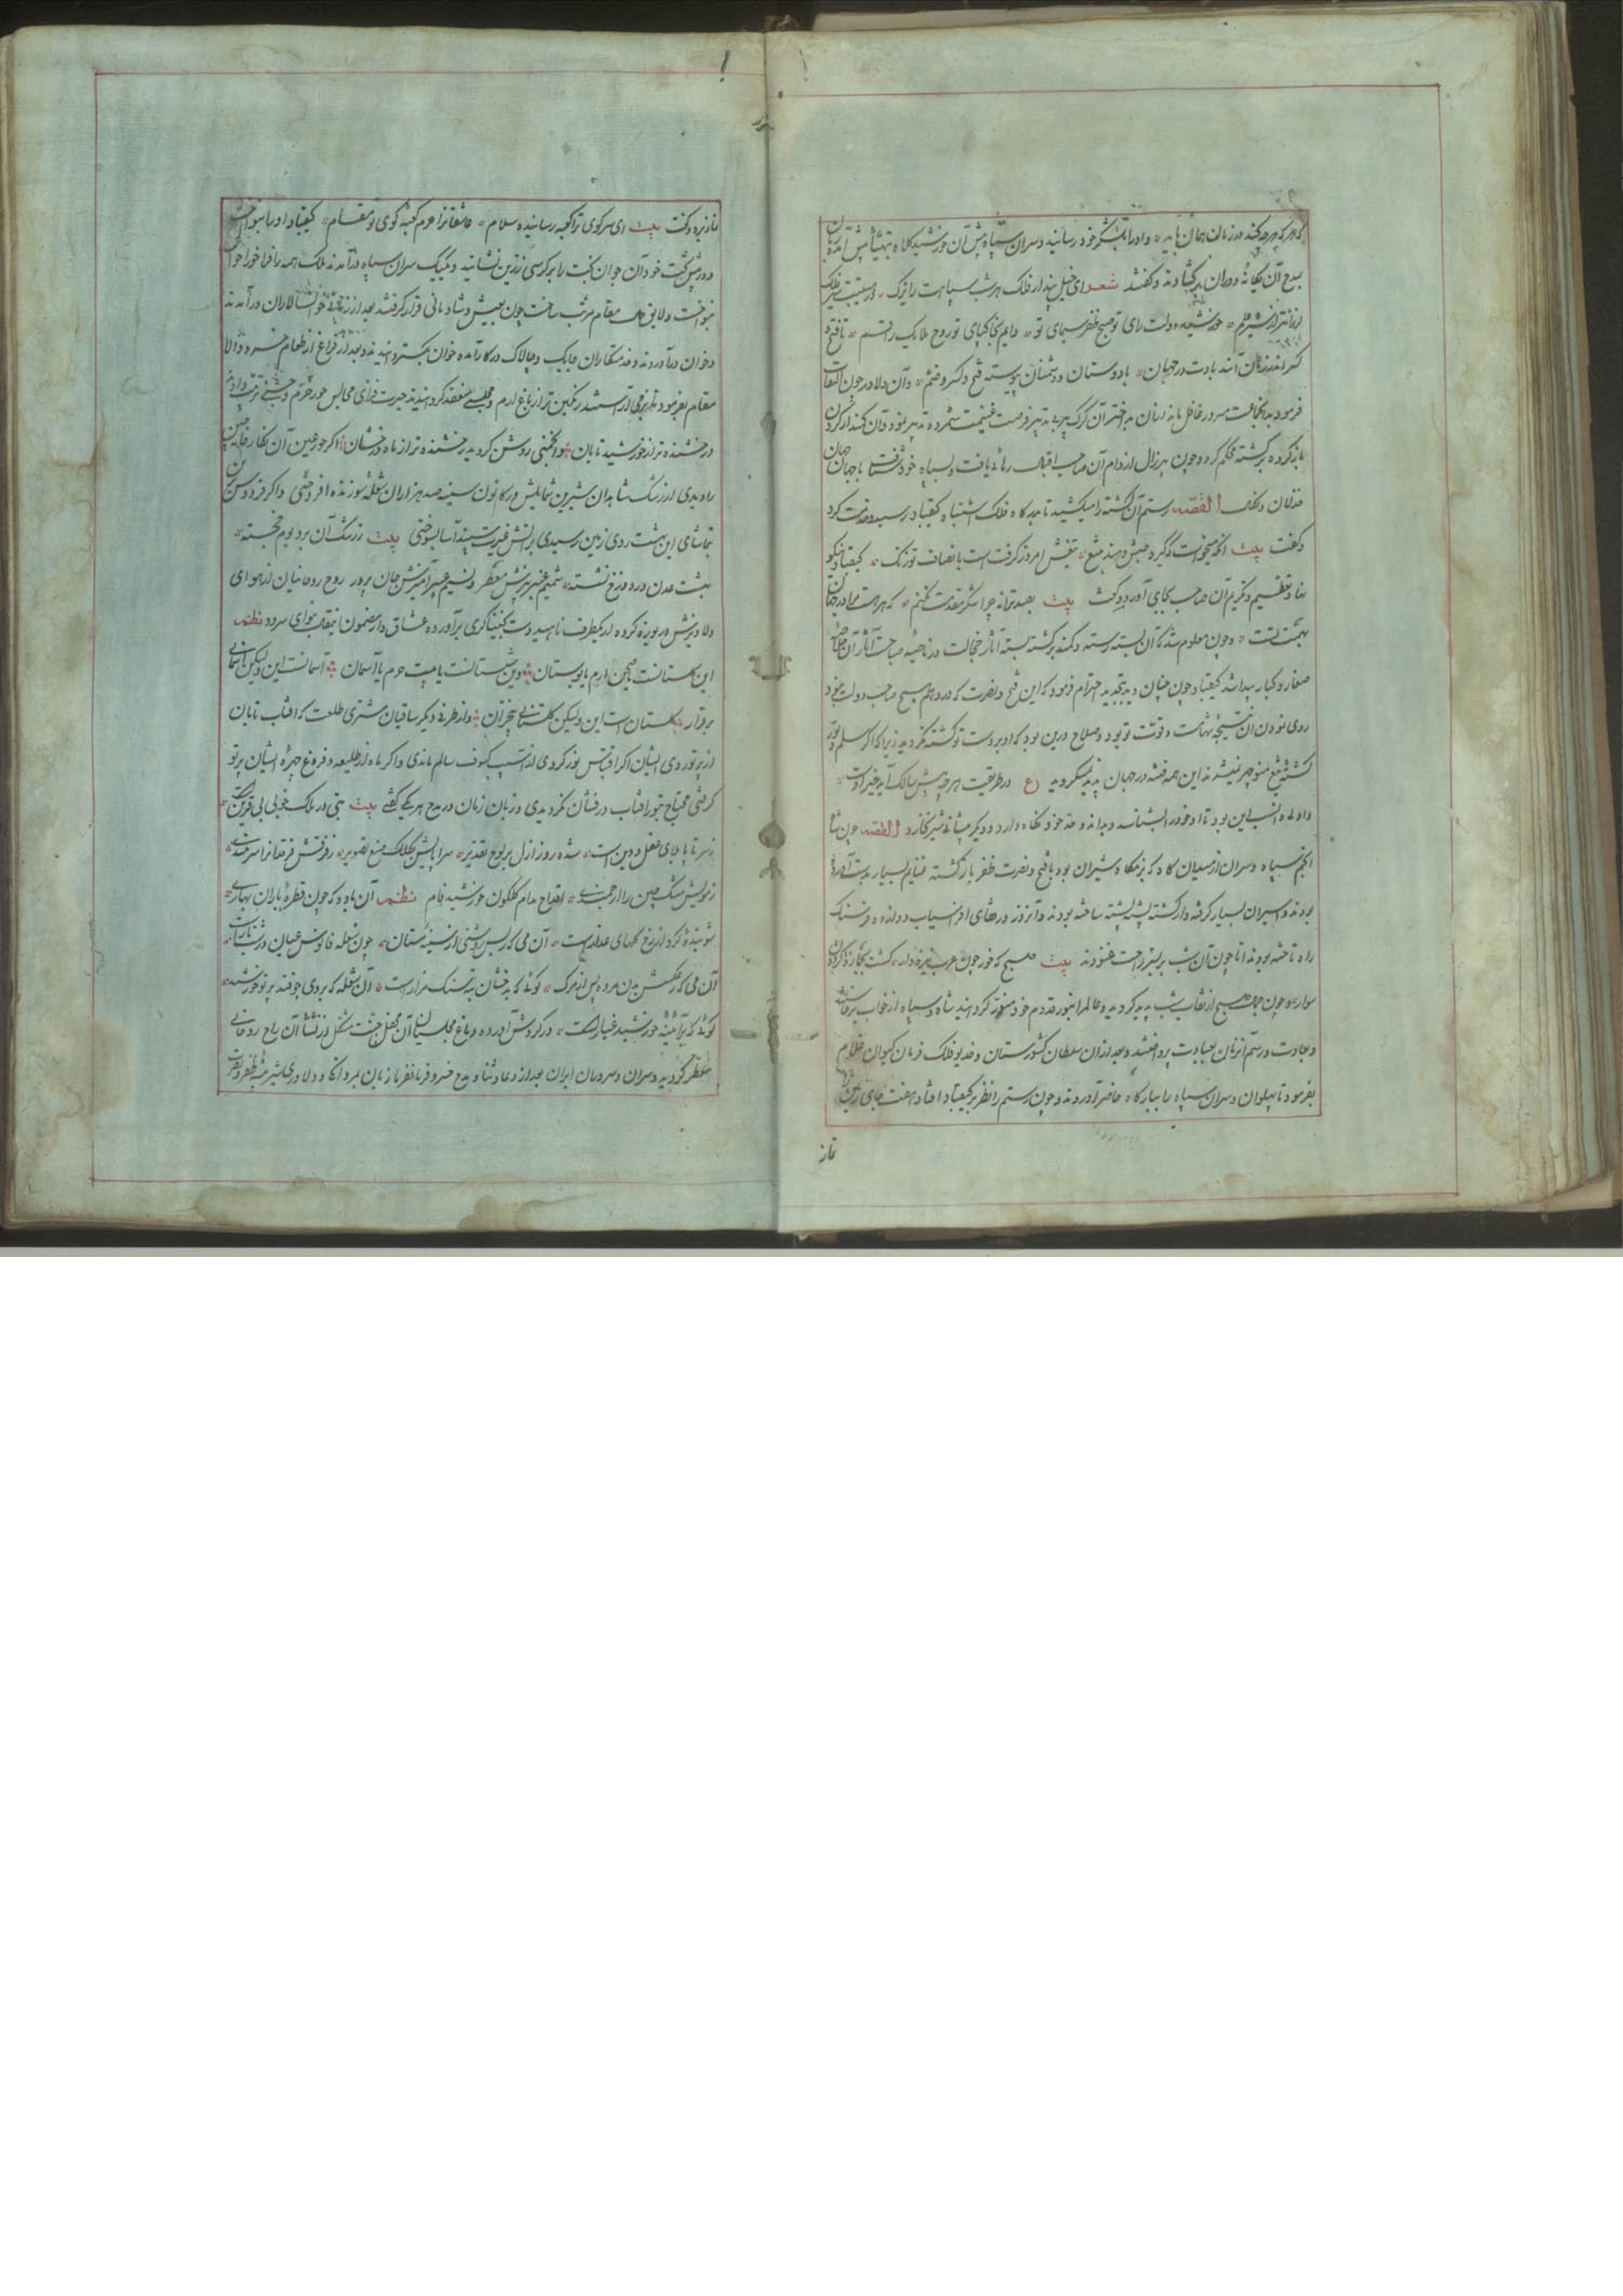 که هر که هر چه کند در زمان همان یابد و او را بلشکر خود رسانید و سران سپاه پیش آن خورشید کلاه بتهنیت پیش آمده زبان
بمدح آن یگانه دوران برگشادند و گفتند شعر ای خیل پندار فلک هر شب سپاهت را یزک
خورشید دولت رای تو صبح ظفر سیمای تو دایم بخاکپای تو روح ملایک را قسم تا فتح و
کسر اندر زبان آنند بادت در جهان با دوستان و دشمنان پیوسته فتح و کسر و ضم و آن دلاور چون التفات
فرمود بدانجانب سرور غافل ماند از آن بداختر آن گرگ پیر به تدبیر فرصت غنیمت شمرده تدبیر نمود و آن کمند از گردن
باز کرده بر کشته محکم کرد و چون پیر زال از دام آن صاحب اقبال رهائی یافت و بسپاه خود شتافت با جهان جهان
خذلان و نکال القصه رستم آن کشته را میکشید تا بدرگاه فلک اشتباه کیقباد رسید و خدمت کرد
و گفت بیت آنکه میخواست که گیرد حبش و هند بتیغ تیغش امروز گرفت است بانصاف تو زنگ کیقباد نیکو
نهاد تعظیم و تکریم آن صاحب بجای آورد و گفت بیت بصد ترانه چرا شکر مقدمت نکنم که هر هست مرا در جهان
بهمت تست و چون معلوم شد که آن بسته رسته و کمند بر کشته بسته آثار خجالت در ناصیه صاحب آثار آن خاصه
صغار و کبار پیدا شد کیقباد چون چنان دید بتجدید احترام فرمود که این فتح و نصرت که در وهم هیچ صاحب دولت نبود
روی نمودن آن نتیجه شهامت و قوت تو بود و صلاح درین بود که او بر دست تو کشته نگردید زیرا که اگر سلم و تور
کشته تیغ منوچهر نمیشدند این همه فتنه در جهان پدید نمیگردید ع در طریقت هر چه پیش سالک آید خیر اوست
و اولی و انسب این بود تا او خود را بشناسد و بداند و حد خود نگاه دارد و دیگر پیشانی شیر نخارد القصه چون شاه
انجم سپاه و سران از میدان گاه که بزمگاه شیران بود با فتح و نصرت ظفر باز گشته غنایم بسیار بدست آورده
بودند و اسیران بسیار گرفته و از کشته پشته پشته ساخته بودند و آنروز در قفای افراسیاب دوازده فرسنگ
راه تاخته بودند اما چون آن شب بر بستر راحت غنودند بیت صبح که خور چون عرب نیزه دار گشت بجمازه گردون
سوار و چون جمال صبح از نقاب شب پدید گردید و عالم را بنور قدوم خود منور گردانید شاه و سپاه از خواب برخاسته
و بعادت و رسم آنزمان بعبادت پرداختند و بعد از آن سلطان کشورستان و خدیو فلک فرمان کیوان غلام
بفرمود تا پهلوان و سران سپاه را ببارگاه حاضر آوردند و چون رستم را نظر بر کیقباد افتاد هفت جای زمین
نماز
نماز برد و گفت بیت ای سر کوی ترا کعبه رسانیده سلام عاشقانرا حرم کعبه کوی تو مقام کیقباد او را بنواخت
و در پیش تخت خود آن جوان بخت را بر کرسی زرین نشانید و یکیک سران سپاه در آمدند ملک همه را فراخور احوال
بنواخت و لایق هر مقام مرتب ساخت چون بعیش و شادمانی قرار گرفتند بعد از زمانی خوانسالاران در آمدند
و خوان در آوردند و خدمتکاران چابک و چالاک در کار آمده خوان بگسترانیدند و بعد از فراغ از طعام خسرو والا
مقام بفرمود تا بزمی آراستند رنگین تر از باغ ارم و مجلسی منعقد گردانیدند حیرت فزای مجالس حور خرم و جشنی ترتیب دادند
درخشنده تر از خورشید تابان و انجمنی روشن گردید رخشنده تر از ماه درخشان اگر حور عین آن نگارخانه چین
را دیدی از رشک شاهدان شیرین شمایلش در کانون سینه صد هزاران شعله سوزنده افروختی و اگر فردوس برین
بتماشای این بهشت روی زمین رسیدی بر آتش غیرت سپند آسا بسوختی بیت ز رشک آن بر و بوم خجسته
بهشت عدن در دوزخ نشسته شمیم عنبر بیزش معطر و نسیم عبیر آمیزش جان پرور روح روحانیان از هوای
دلاویزش دریوزه کرده از یکطرف ناهید دست بخنیاگری برآورده عشاق وار مضمون این مقال بنوای سرود نظم
این گلستانست یا صحن ارم یا بوستان وین شبستانست یا بیت حرم یا آسمان آسمانست این ولیکن آسمانی
برقرار گلستان است این ولیکن گلستانی بیخزان و از طرف دیگر ساقیان مشتری طلعت که آفتاب تابان
از پرتو روی ایشان اگر اقتباس نور کردی از آسیب کسوف سالم ماندی و اگر ماه از طلیعه و فروغ چهره ایشان پرتو
گرفتی محتاج بنور آفتاب درفشان نگردیدی و زبان زمان در مدح هر یکی گفتی بیت بتی در ملک خوبی بی قرین است
ز سر تا پا بلای عقل و دین است شده روز ازل بر لوح تقدیر سراپایش بکلک صنع تصویر ز فرقش فرقدانرا سربلندی
ز مویش مشک چین را ارجمندی اقداح مدام گلگون خورشید فام نظم آن باده که چون قطره باران بهاری
شوینده گرد از رخ گلهای عذار است آن می که ز بس روشنی از سینه مستان چون شعله فانوس عیان در شب تار است
آن می که ز عکسش بدن مرده پس از مرگ گوئی که بدخشان بته سنگ مزار است آن شعله که بر وی چو فتد پرتو خورشید
گوئی که بر آئینه خورشید غبار است در گردش آورده دماغ مجلسیان آن محفل جنت مشکل از نشئاء آن راح روحانی
معطر گردید و سران و سروران ایران بعد از دعا و ثنا و مدح خسرو فرمانفرما زبان بمردانگی و دلاوری